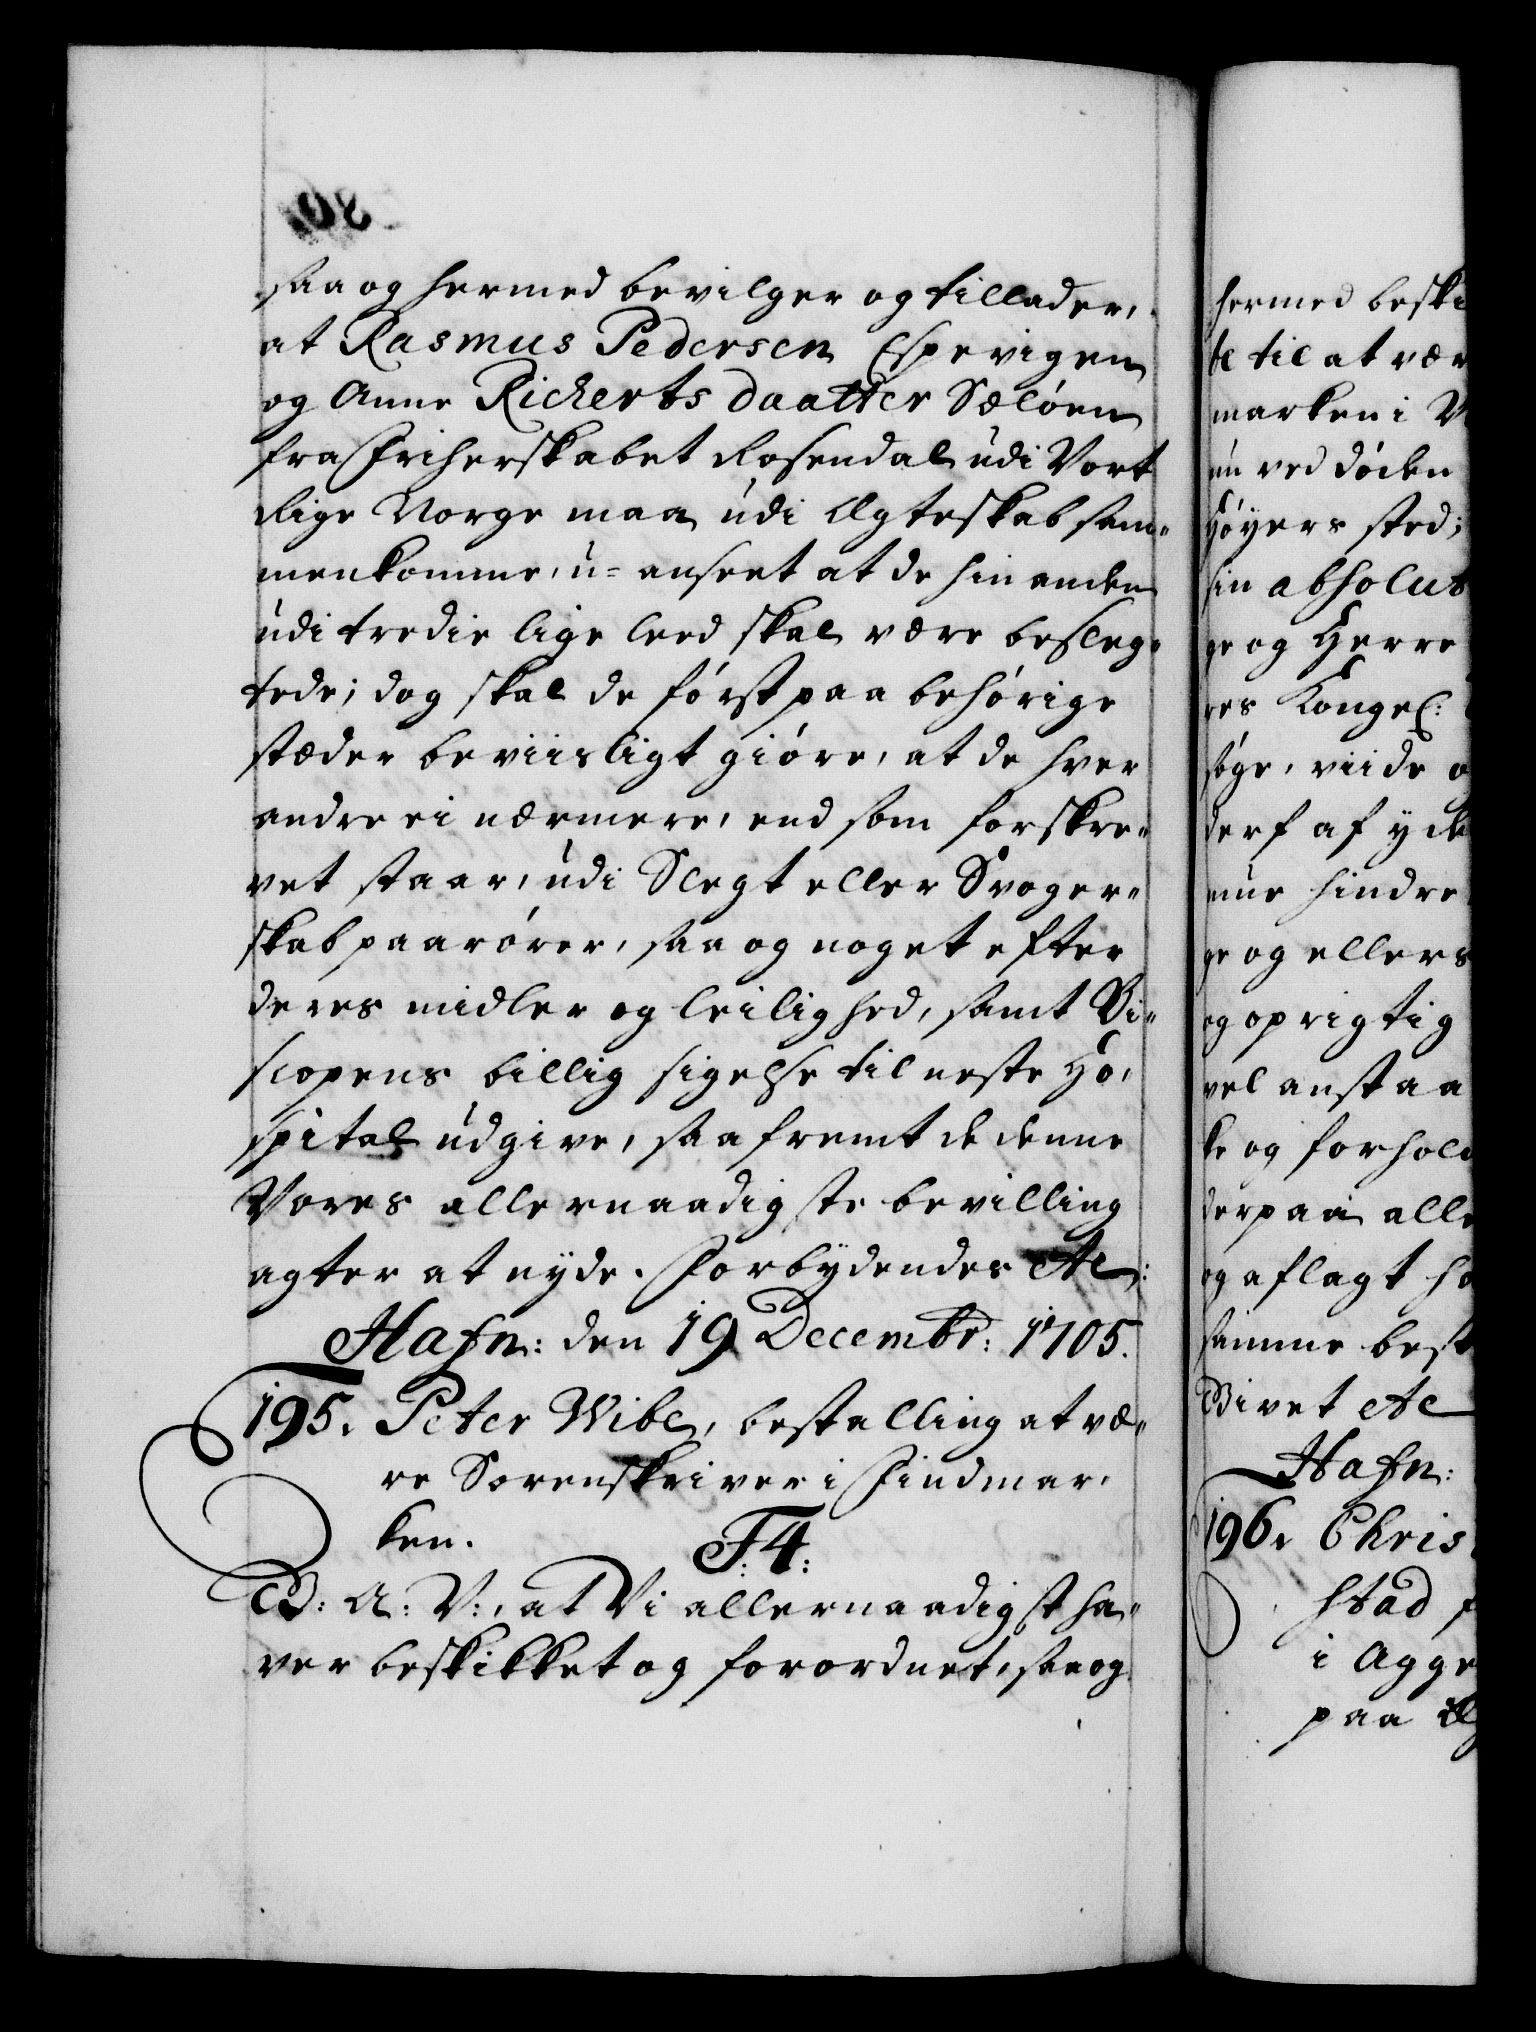 saa og hermed bevilger og tillader,
at Rasmus Pedersen Espevigen
og Anne Richerts daatter Sæløen
fra Friherskabet Rosendal udi Vort
Rige Norge maa udi Egteskab sam-
menkomme, u-anseet at de hin anden
udi tredie lige leed skal være besleg-
tede; dog skal de først paa behørige
stæder beviisligt giøre, at de hver
andre ei nærmere, end som forskre-
vet staar, udi Slegt eller Svoger-
skab paarører, saa og noget efter
deres midler og leilighed, samt Bi-
scopens billig sigelse til neste Ho-
spital udgive, saafremt de denne
Vores allernaadigste bevilling
agter at nyde. Forbydendes etc:
Hafn: den 19 Decembr: 1705.
195. Peter Wibe, bestalling at væ-
re Sorenskriver i Findmar-
ken. F: 4:
G: A: V:, at Vi allernaadigst ha-
ver beskikket og forordnet, saa og
hermed beski
te til at vær
marken i V
nu ved døden
Høyers sted;
sin absolut
ge og Herre
res Kongel:
søge, viide o
derf af yde
nue hindre
ge og ellers
og oprigtig
vel anstaa
ke og forhold
derpaa alle
og aflagt ha
samme best
Givet etc
Hafn:
196. Chris
stad f
i Agge
paa